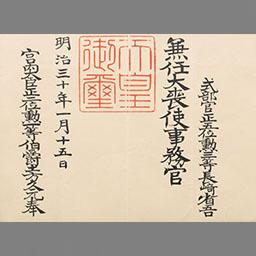 式部官正五位勲三等長崎省吾
兼任大喪使事務官
天皇御璽
明治三十年一月十五日
宮内大臣正二位勲一等伯爵土方久元奉